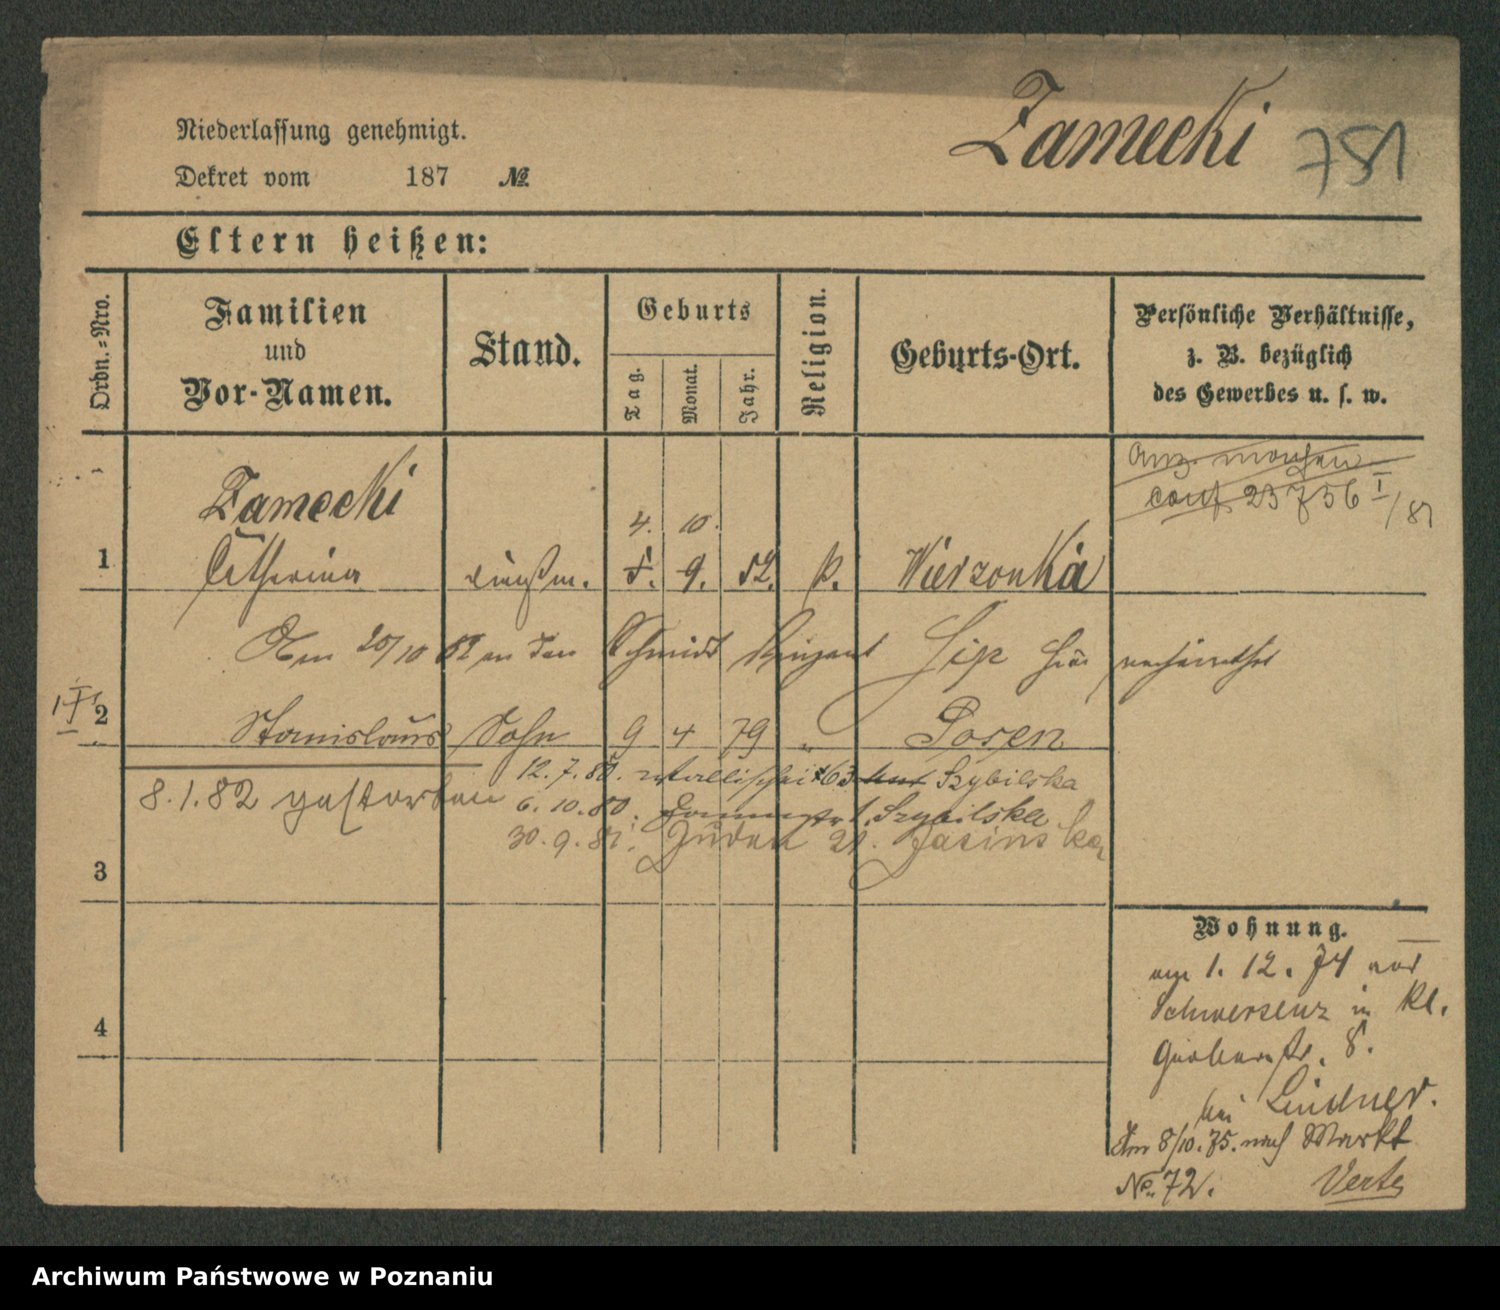 Zamecki 781
Niederlassung genehmigt.
Dekret vom 187 №
Eltern heißen:
Ordn.-Nro.
Familien
und
Vor-Namen.
Stand.
Geburts
Tag.
Monat.
Jahr.
Religion.
Geburts-Ort.
Persönliche Verhältnisse,
z. B. bezüglich
des Gewerbes u. s. w.
23756 I/81
Zamecki
4. 10.
1 Catharina 8. 9. 52. k. Wierzonka
Am 20/10 82 an den Schmidt Vinzent Sip hier verheirathet
2 Stanislaus Sohn 9 4 79 " Posen
12. 7. 80. Wallischei 63 Szybilska
8.1.82 gestorben
6. 10. 80. 1. Szybilska
30. 9. 81. Juden 21. Jasinska
3
4
Wohnung.
am 1. 12. 74 aus
Schwersenz in kl.
Gerberstr. 8.
bei Lindner.
Am 8/10. 75. nach Markt
No. 72. Verte
Archiwum Państwowe w Poznaniu